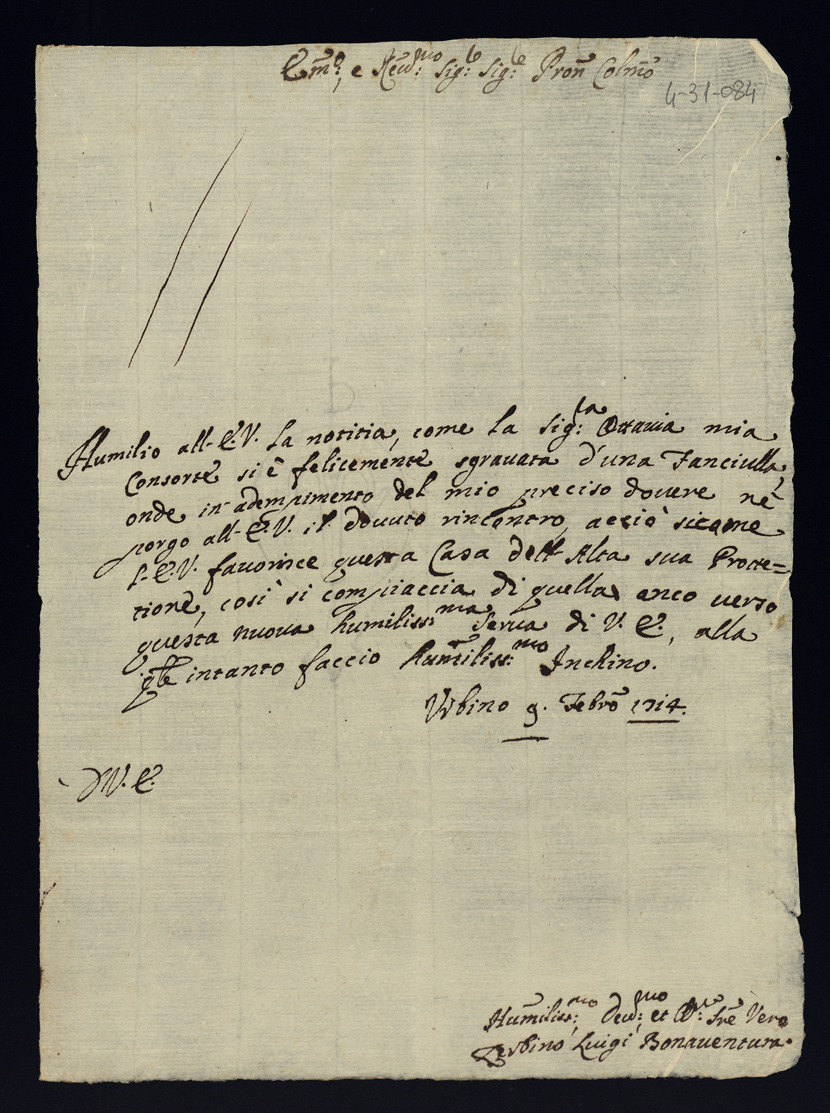 Em:o, e Reu:mo Sig:re Sig:re Pron Colmo
4-31-084
Humilio all-E.V. la notitia, come la Sig:ra Ottauia mia
Consorte si è felicemente sgrauata d'una Fanciulla,
onde in adempimento del mio preciso douere nè
porgo all-E.V. il douuto rincontro, acciò sicome
l-E.V. fauorisce questa Casa dell-Alta sua Prote=
tione, così si compiaccia di quella anco uerso
questa nuoua humilissi:ma Serua di V. E., alla
qle intanto faccio humiliss:mo Inchino.
Vrbino 9. Febro 1714.
D V. E.
Humiliss:mo Deu:mo et Ob:mo Sre Vero
Luigi Bonauentura